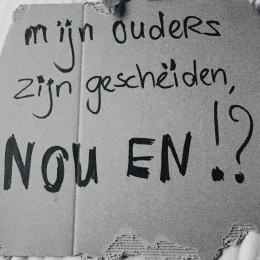 mijn ouders
zijn gescheiden,
NOU EN !?